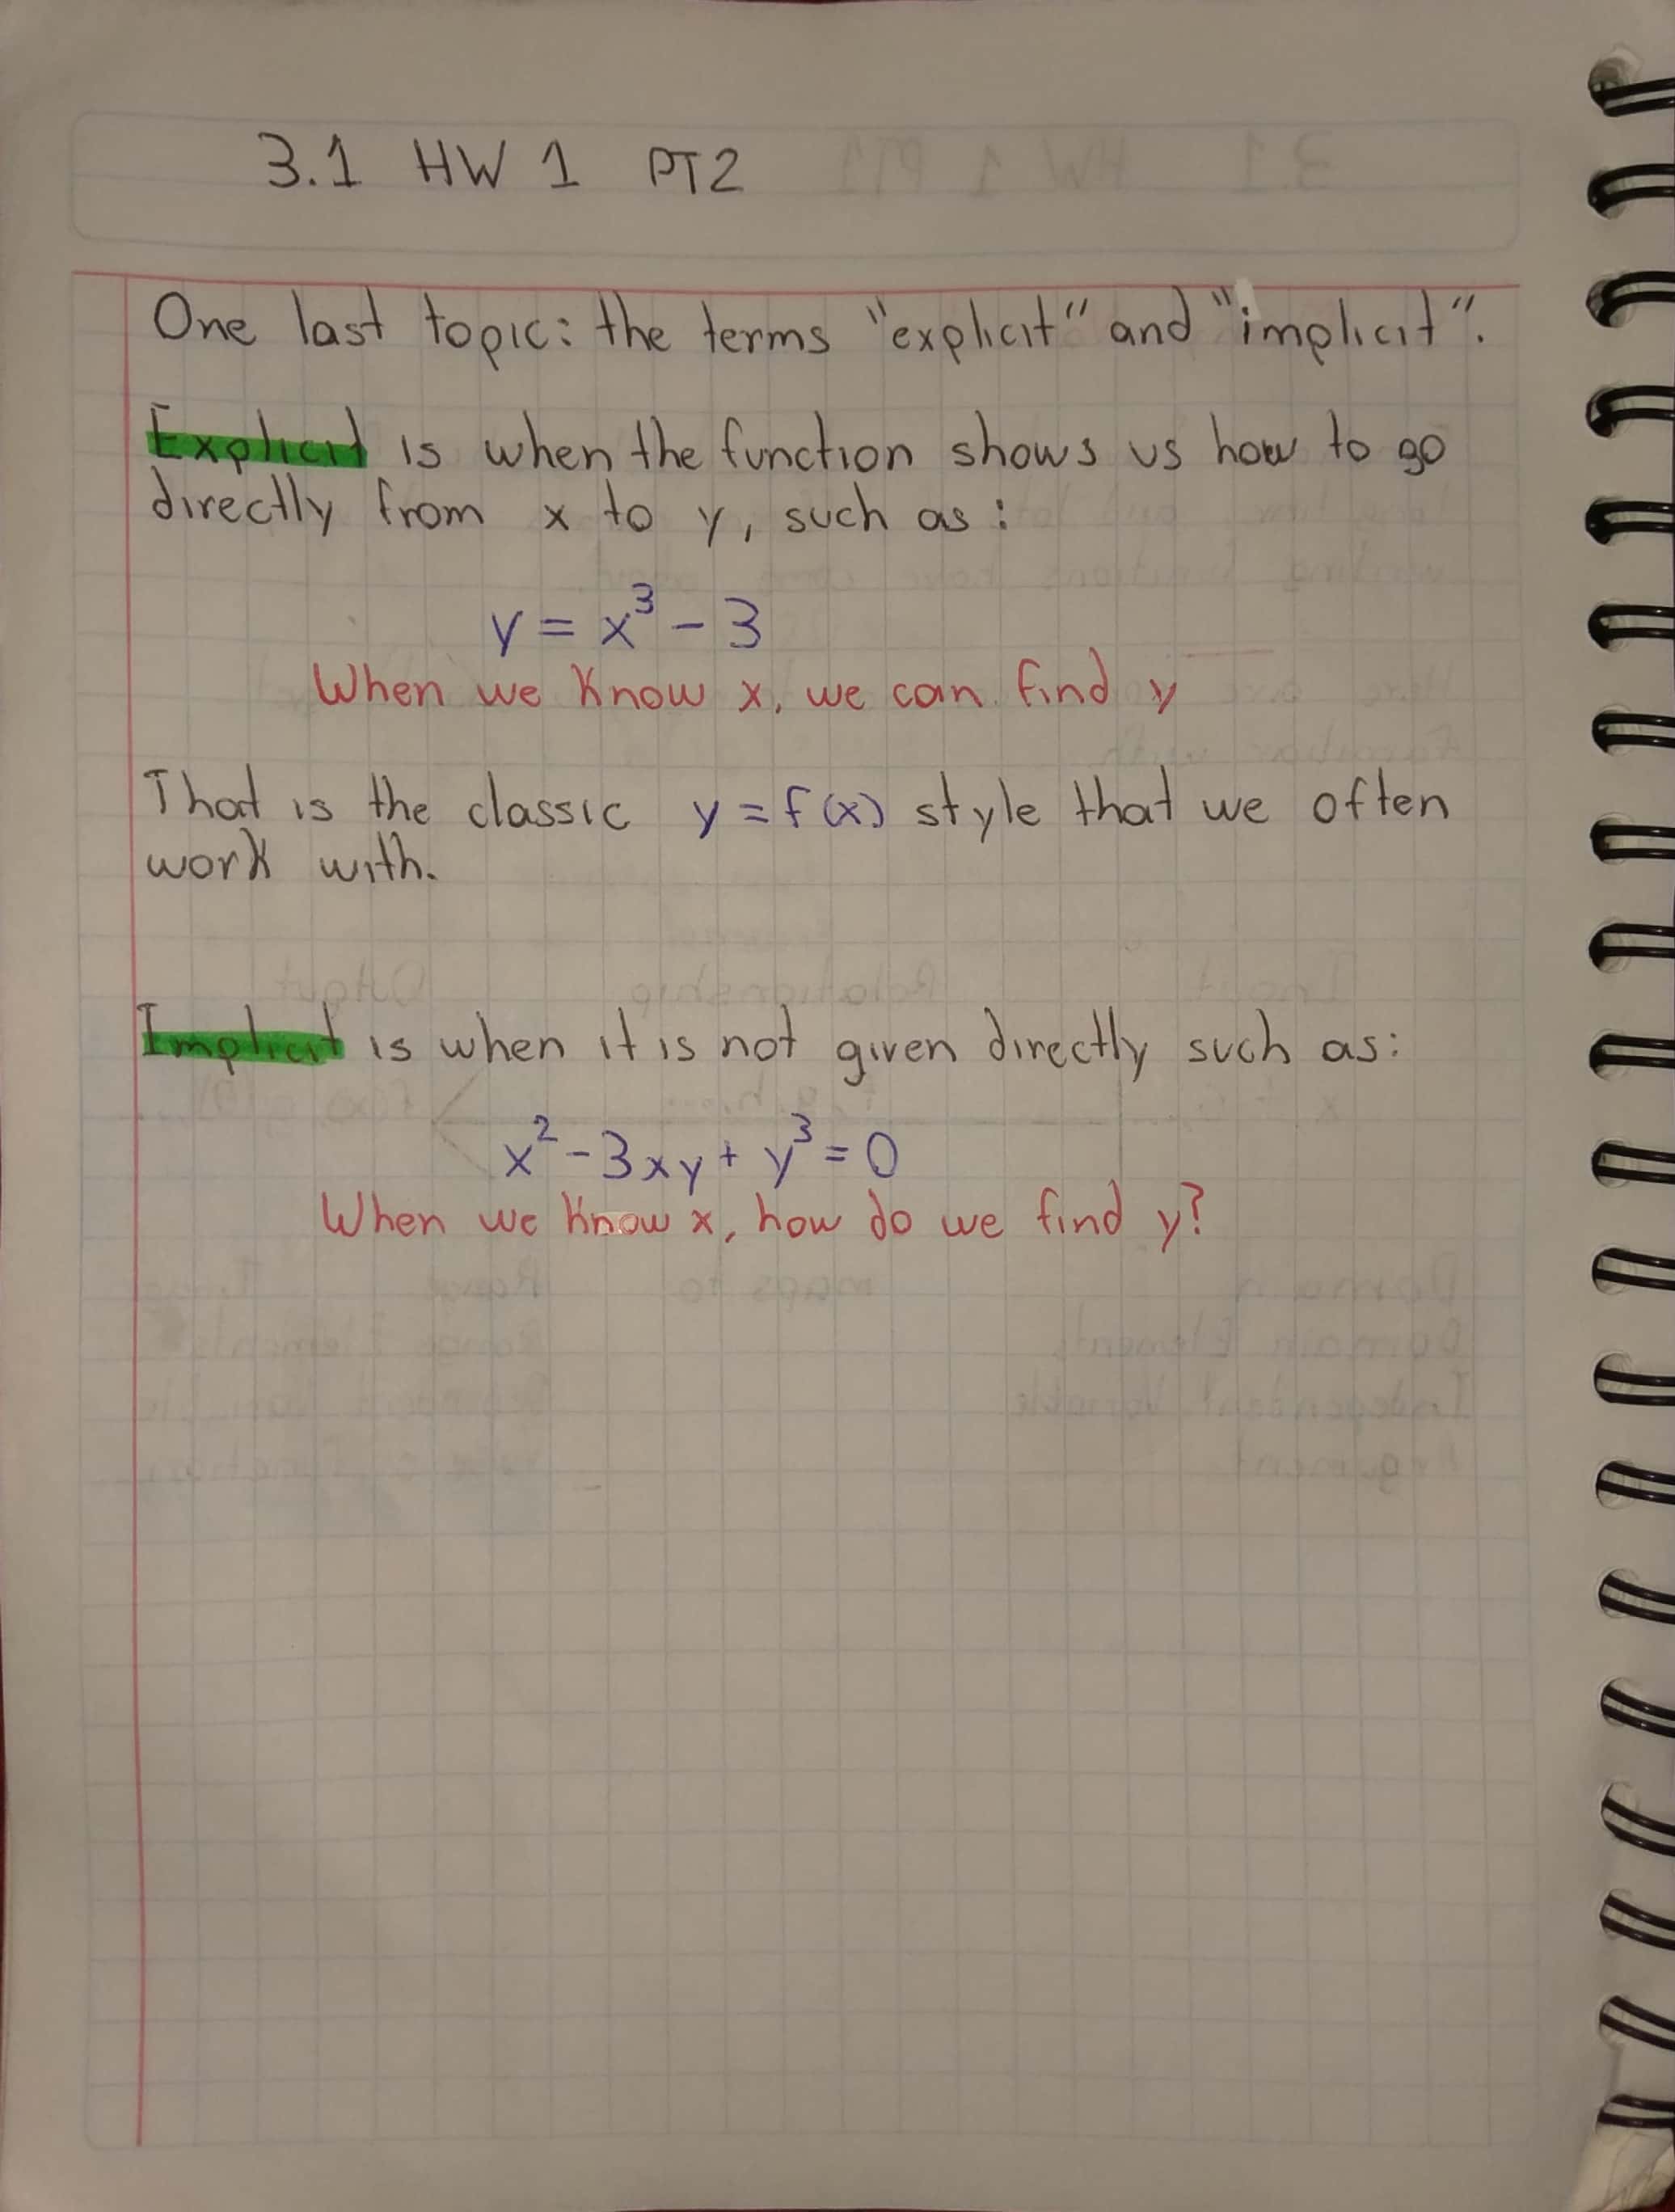 3.1 HW 1 PT2
One last topic: the terms "explicit" and "implicit".
Explicit is when the function shows us how to go
directly from x to y, such as:
y = x³ - 3
When we know x, we can find y
That is the classic y = f(x) style that we often
work with.
Implicit is when it is not given directly such as:
x² - 3xy + y³ = 0
When we know x, how do we find y?